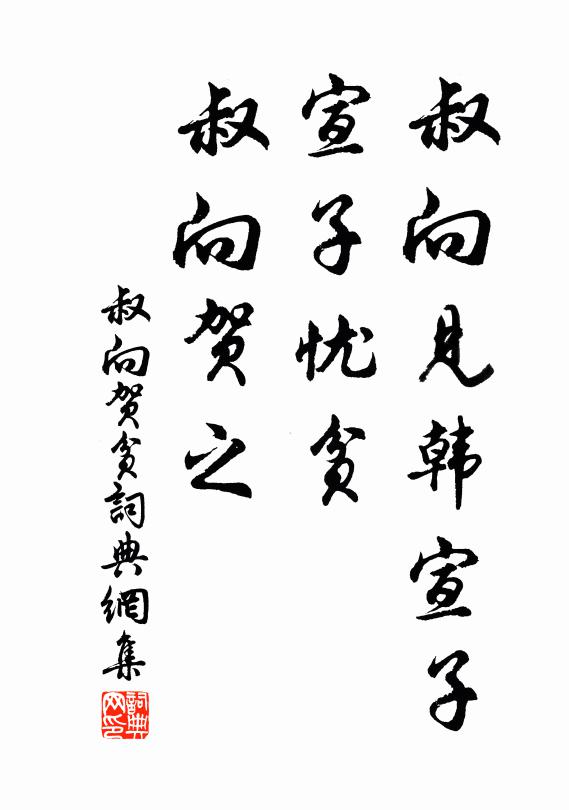 叔向见韩宣子
宣子忧贫
叔向贺之
叔向贺贫詞典網集
詞典网印